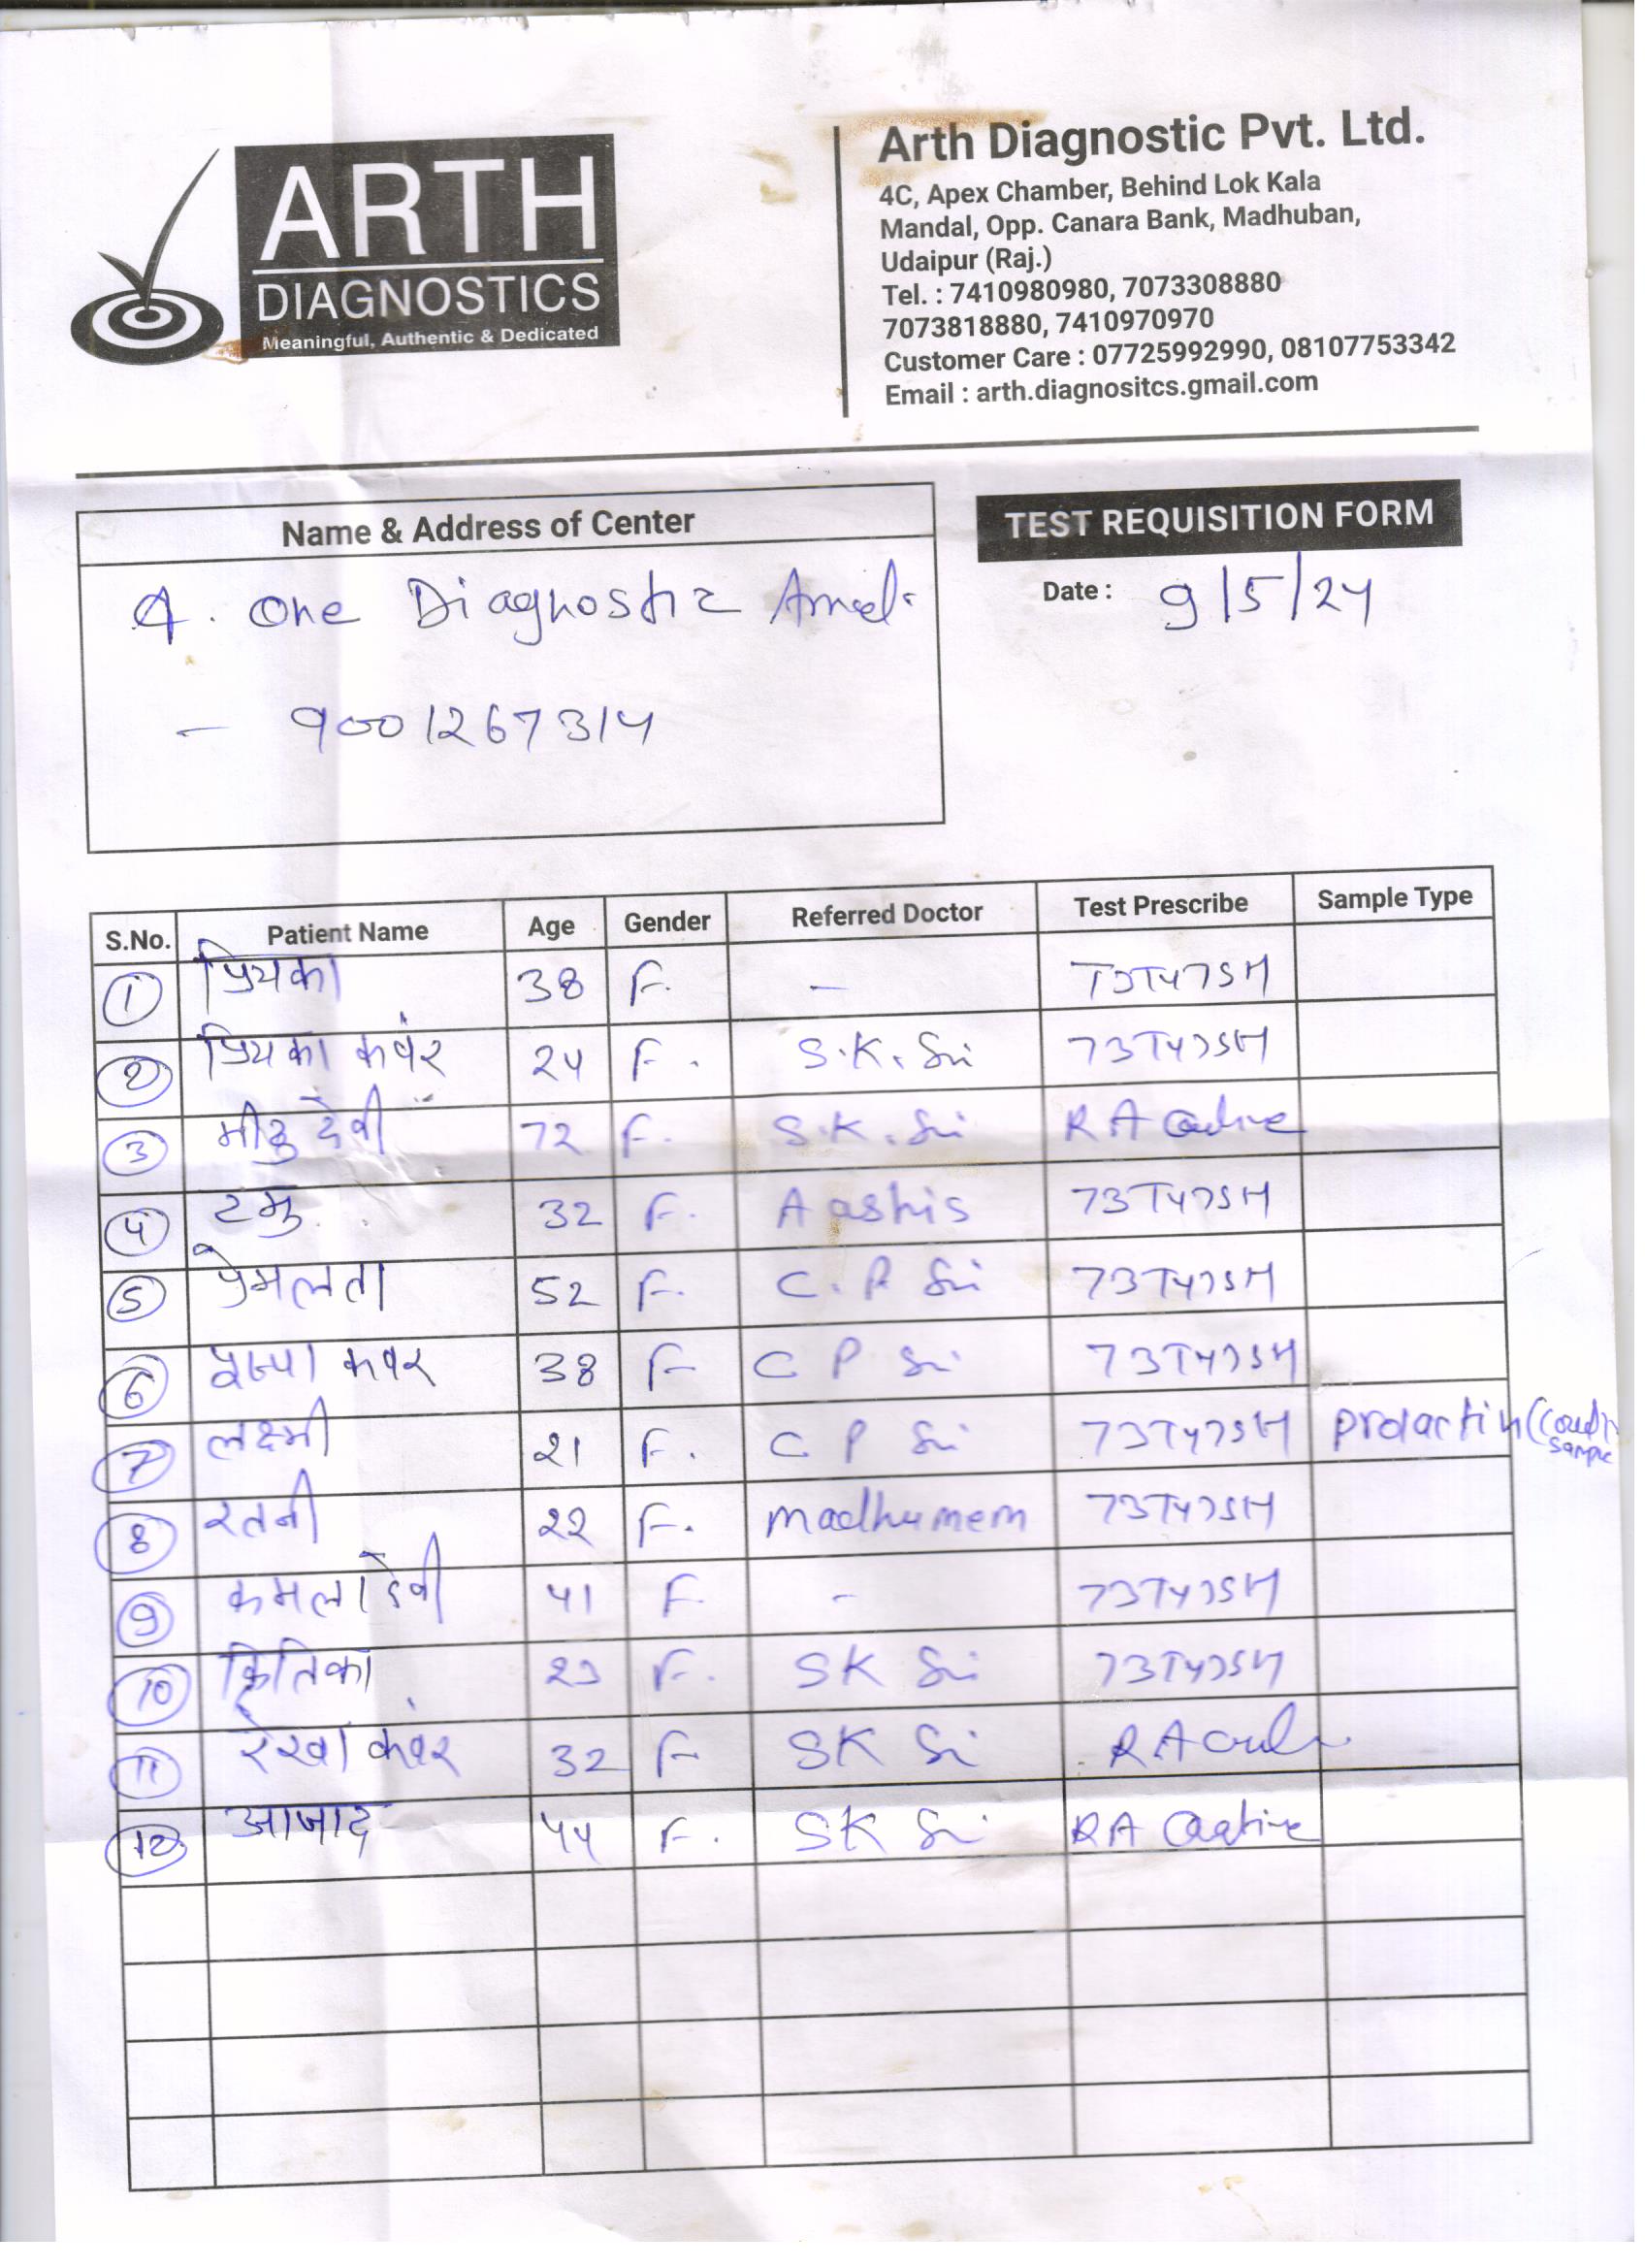 ARTH
DIAGNOSTICS
Meaningful, Authentic & Dedicated
Arth Diagnostic Pvt. Ltd.
4C, Apex Chamber, Behind Lok Kala
Mandal, Opp. Canara Bank, Madhuban,
Udaipur (Raj.)
Tel. : 7410980980, 7073308880
7073818880, 7410970970
Customer Care : 07725992990, 08107753342
Email : arth.diagnositcs.gmail.com
Name & Address of Center
A. One Diagnostic
- 9001267314
TEST REQUISITION FORM
Date : 9/5/24
S.No. Patient Name Age Gender Referred Doctor Test Prescribe Sample Type
1 प्रियका 38 F. - T3T4TSH
2 प्रियका कवंर 24 F. S.K. Sir T3T4TSH
3 देवी 72 F. S.K. Sir RA
4 टमु 32 F. Aashis T3T4TSH
5 प्रेमलता 52 F. C.P Sir T3T4TSH
6 कवर 38 F C P Sir T3T4TSH
7 लक्ष्मी 21 F. C P Sir T3T4TSH prolactin sample
8 रतनी 22 F. madhumem T3T4TSH
9 कमला देवी 41 F. - T3T4TSH
10 क्रितिका 23 F. SK Sir T3T4TSH
11 रेखा कवंर 32 F SK Sir RA
12 आजाद 44 F. SK Sir RA